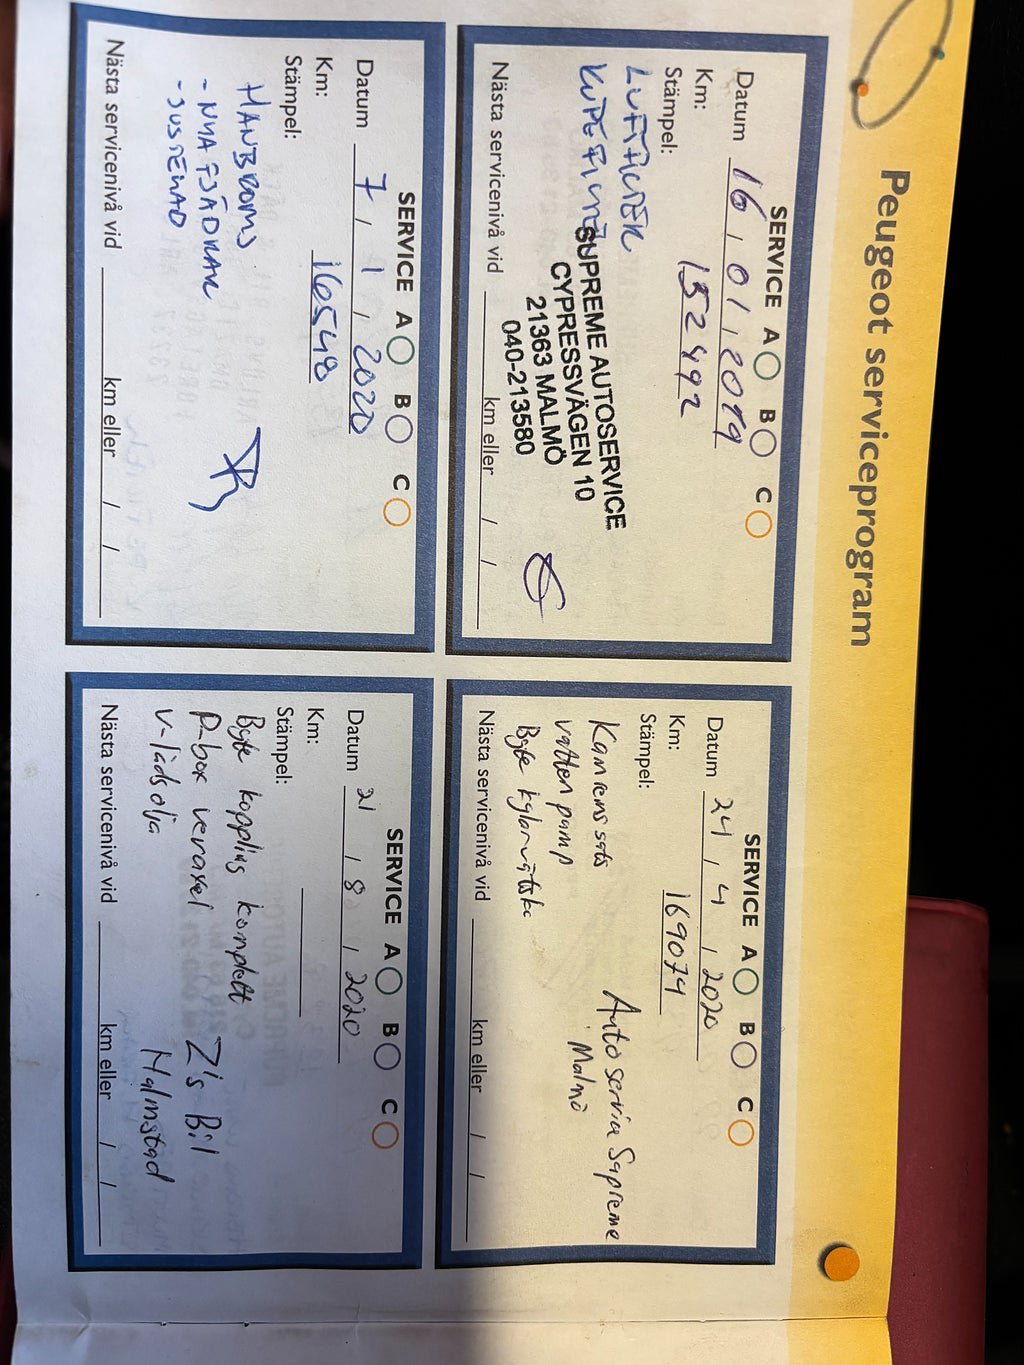 Peugeot serviceprogram
SERVICE A B C
Datum 16 / 01 / 2019
Km: 152492
Stämpel:
LUFTFILTER
KUPEFILTER
SUPREME AUTOSERVICE
CYPRESSVÄGEN 10
21363 MALMÖ
040-213580
Nästa servicenivå vid km eller / /
SERVICE A B C
Datum 24 / 4 / 2020
Km: 169074
Stämpel:
Kamremssats
vattenpump
Byte kylarvätska
Autoservice Supreme
Malmö
Nästa servicenivå vid km eller / /
SERVICE A B C
Datum 7 / 1 / 2020
Km: 16548
Stämpel:
HANDBROMS
- NYA FJÄDRAR
- JUSTERAD
Nästa servicenivå vid km eller / /
SERVICE A B C
Datum 21 / 8 / 2020
Km:
Stämpel:
Byte koppling komplett
P-box vevaxel
v-lådsolja
Z's Bil
Halmstad
Nästa servicenivå vid km eller / /